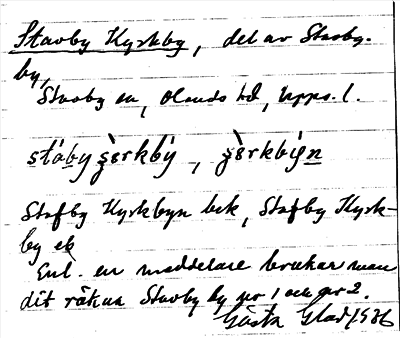 Stavby Kyrkby, del av Stavby-
by,
Stavby sn, Olands hd, Upps. l.
stáby ʂèrkbý, ʂèrkbýn
Stafby Kyrkbyn bek, Stafby Kyrk-
by ek
Enl. en meddelare brukar man
dit räkna Stavby by nr 1 och nr 2.
Gösta Glad 1936